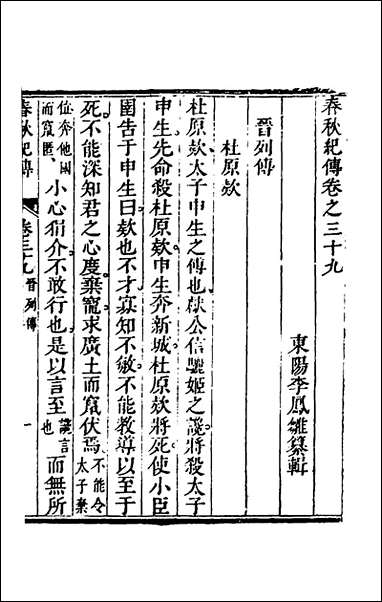 春秋紀傳卷之三十九
東陽李鳳雛纂輯
晉列傳
杜原欵
杜原欵太子申生之傅也獻公信驪姬之譖將殺太子
申生先命殺杜原欵申生奔新城杜原欵將死使小臣
圉告于申生曰欵也不才寡知不敏不能教導以至于
死不能深知君之心度棄寵求廣土而竄伏焉不能令太子棄
位奔他國而竄匿小心狷介不敢行也是以言至讒言也而無所
春秋紀傳 卷三十九 晉列傳 一